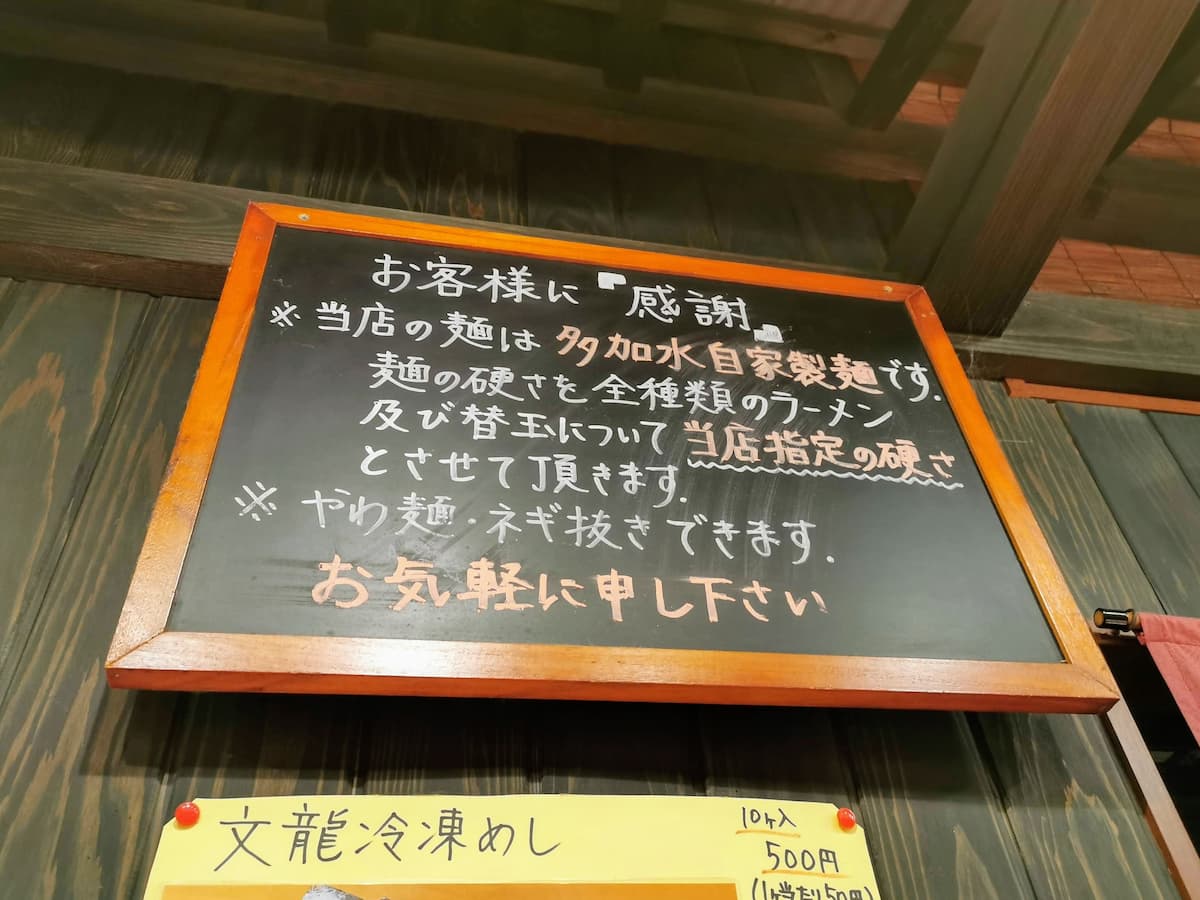 お客様に『感謝』
※当店の麺は多加水自家製麺です.
麺の硬さを全種類のラーメン
及び替玉について当店指定の硬さ
とさせて頂きます.
※やわ麺・ネギ抜きできます.
お気軽に申し下さい
文龍冷凍めし
10ヶ入
500円
(1ヶ当たり50円)